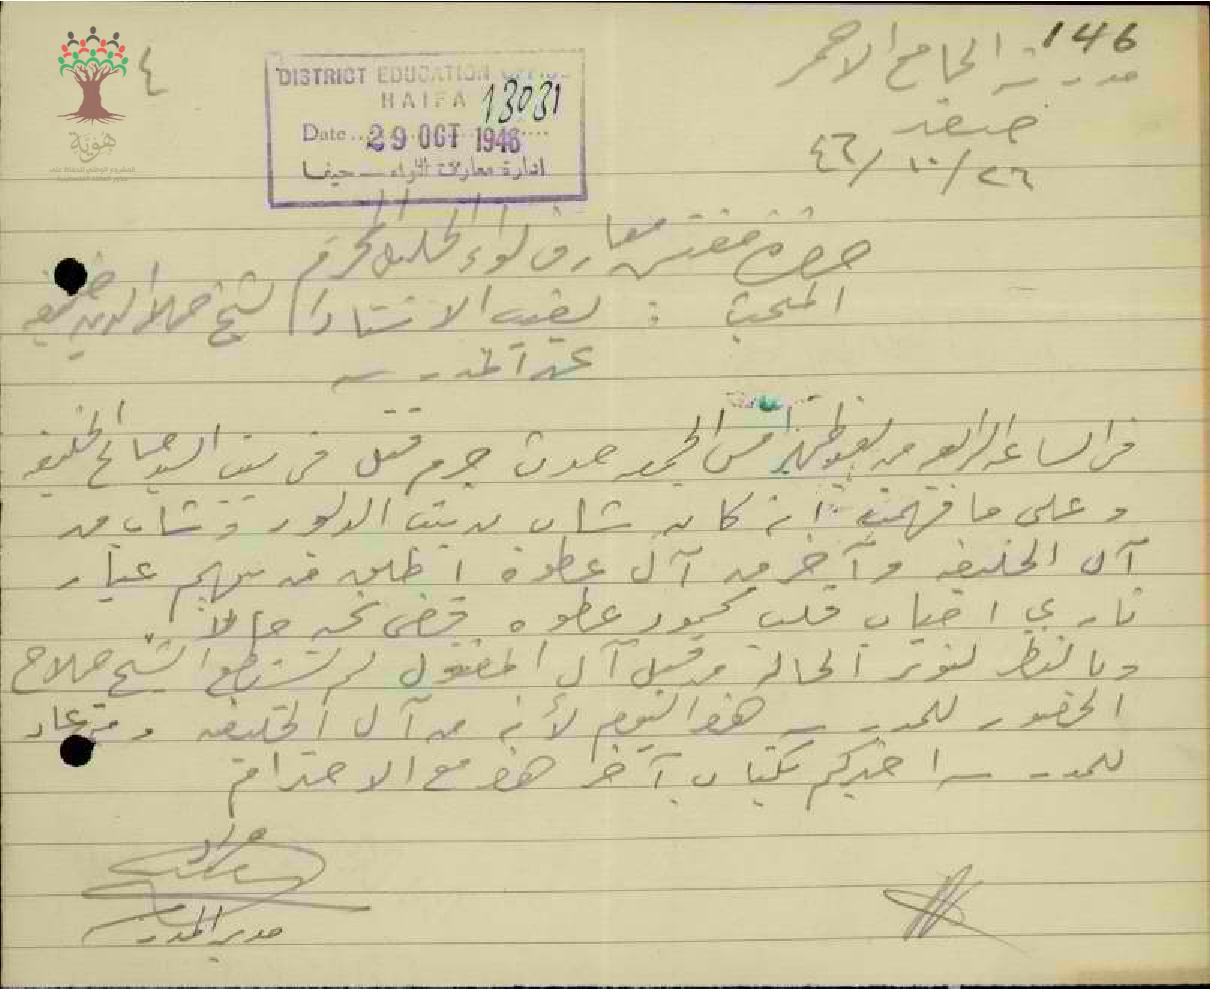 146
مدرسة الجامع الاحمر
صفد
٢٦/١٠/٤٦
٤
DISTRICT EDUCATION OFFICE
HAIFA 13031
Date 29 OCT 1946
ادارة معارف اللواء — حيفا
هوية
حضرة مفتش معارف لواء الجليل المحترم
المبحث : تغيب الاستاذ الشيخ صلاح الدين خليفه
عن المدرسه
في الساعه الرابعه من بعد ظهر امس الجمعه حدث جرم قتل في بيت السيد صالح الخليفه
وعلى ما فهمته انه كان شاب من بيت الدلور وشاب من
آل الخليفه وآخر من آل عطوة اطلق من بينهم عيار
ناري اصاب قلب محمود عطوه قضى نحبه حالاً .
وبالنظر لتوتر الحالة من قبل آل المقتول لم يستطع الشيخ صلاح
الحضور للمدرسه هذا اليوم لأنه من آل الخليفه ومتى عاد
للمدرسه اخبركم بكتاب آخر هذا مع الاحترام
مدير المدرسه